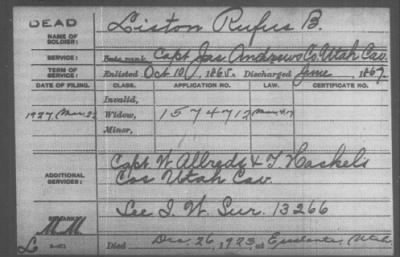 DEAD
Liston Rufus B.
NAME OF SOLDIER:
SERVICE: Late rank, Capt Jas Andrews Co. Utah Cav.
TERM OF SERVICE: Enlisted Oct 10, 1865. Discharged June, 1867
DATE OF FILING. CLASS. APPLICATION NO. LAW. CERTIFICATE NO.
Invalid,
1927 Mar. Widow, 1574712
Minor,
ADDITIONAL SERVICES: Capt W Allreds & T. Haskels
Cos Utah Cav.
See I. W. Sur. 13266
REMARKS:
Died Dec. 26, 1923, at Escalante, Utah